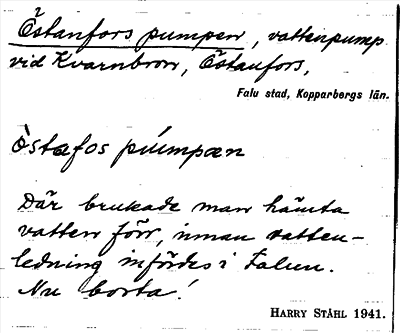 Östanforspumpen, vattenpump
vid Kvarnbron, Östanfors,
Falu stad, Kopparbergs län.
òstafos pùmpæn
Där brukade man hämta
vatten förr, innan vatten-
ledning infördes i Falun.
Nu borta!
HARRY STÅHL 1941.